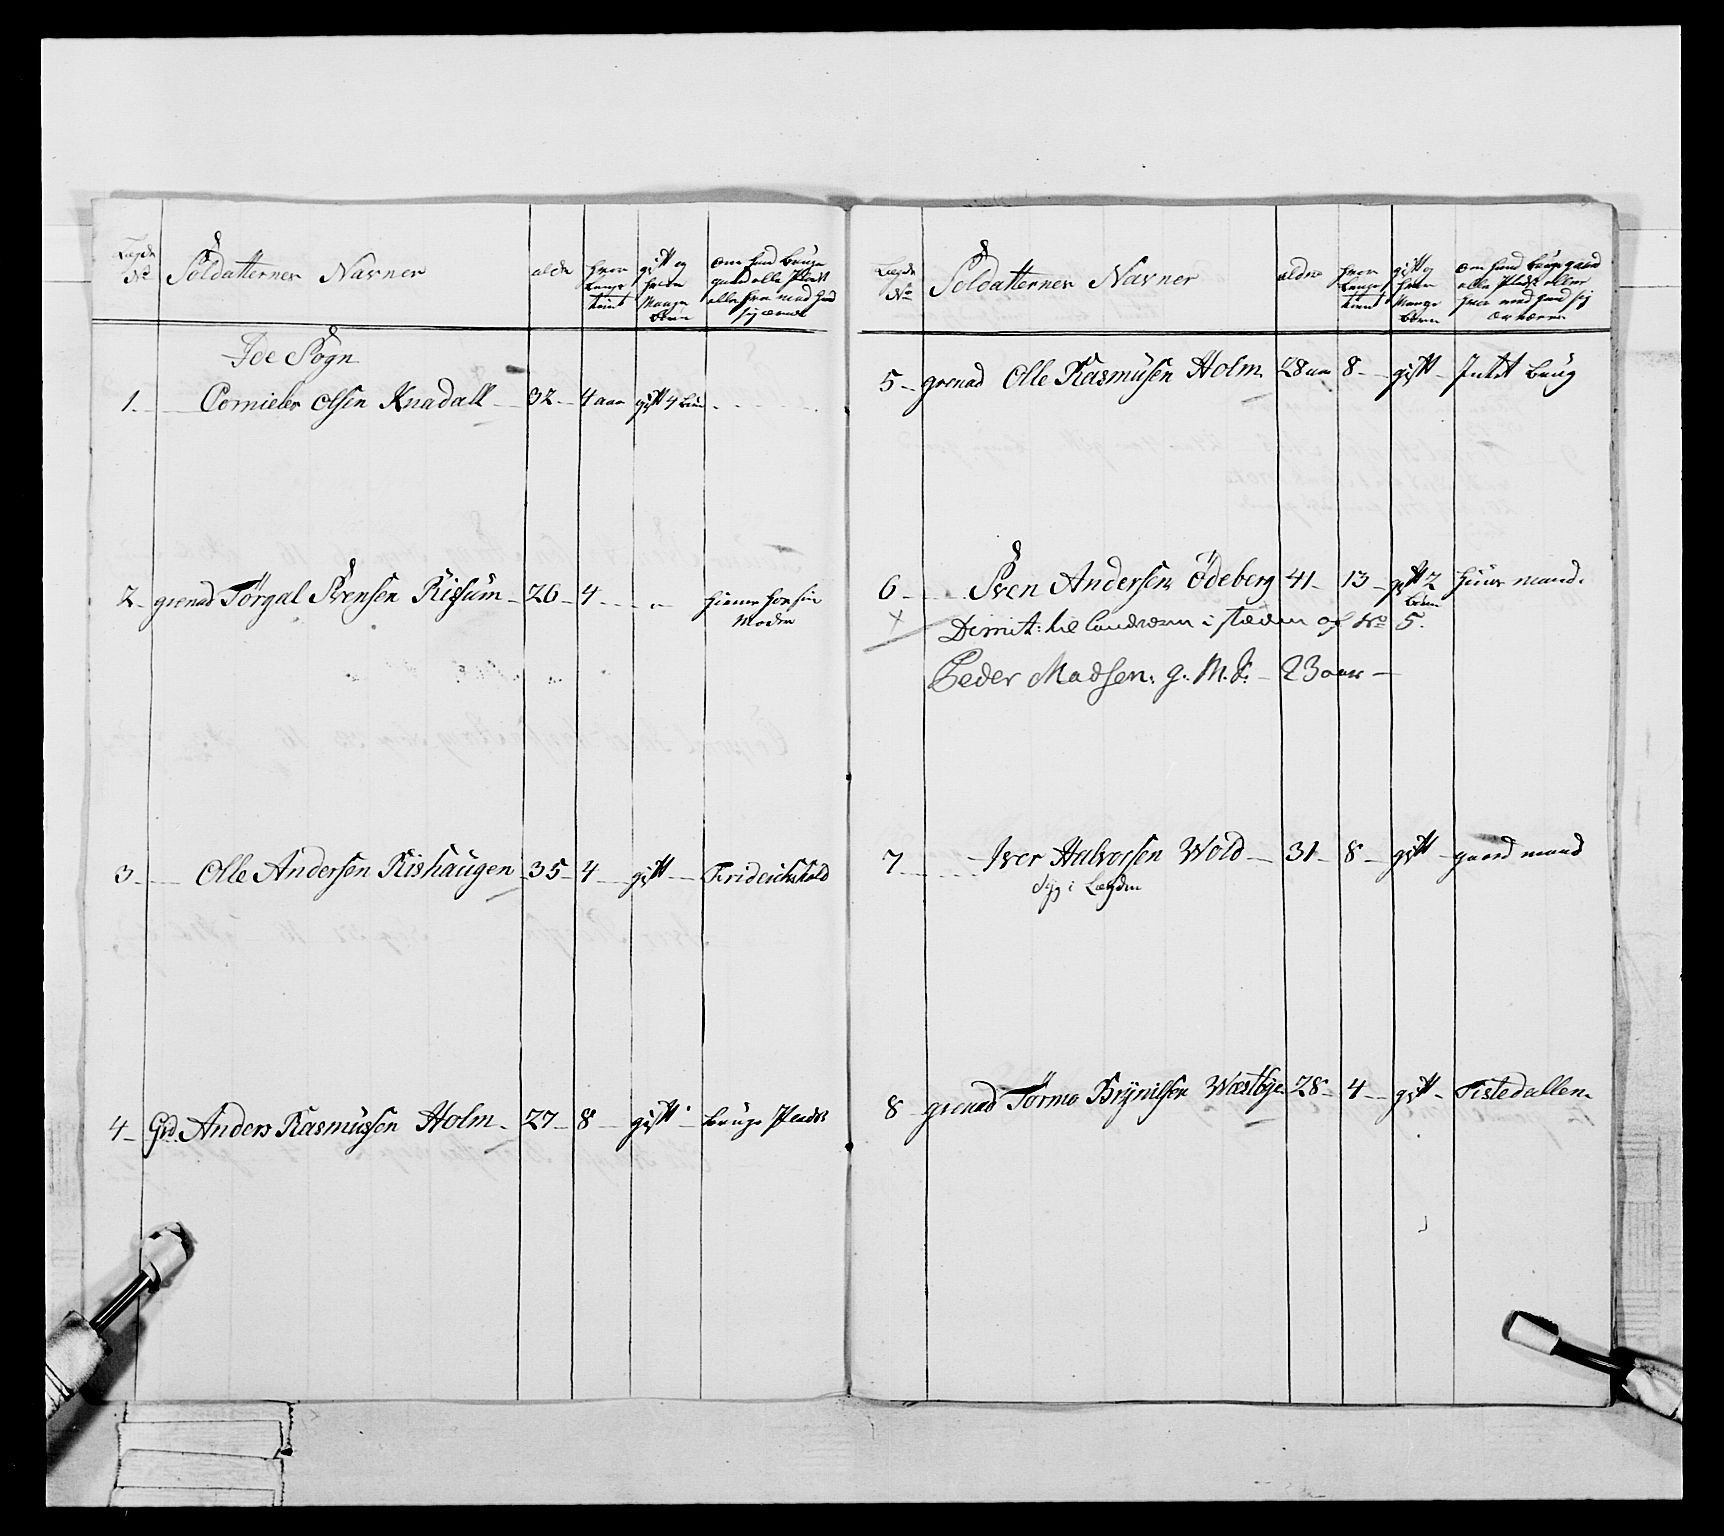 Lægds No Soldatternes Navner alder hvor lenge tient gift og hvor Mange børn om hand bruger gaard eller Plads eller hvor med hand sig ernær
Ide Sogn
1. Cornieler Olsen Knadall 32 4 aar gift 4 børn
2 grenad Törgal Svensen Risüm 26 4 tiener hos sin Moder
3 Olle Andersen Rishaugen 35 4 gift Friderichshald
4 Grd Anders Rasmüssen Holm 27 8 gift brüger Plads
Lægds No Soldatternes Navner alder hvor lenge tient gift og hvor Mange børn om hand brüger gaard eller Plads eller hvor med hand sig ernærer
5 grenad Olle Rasmüsen Holm 28 aar 8 gift Intet brug
6 Sven Andersen Ödeberg 41 13 gift 2 børn Hüüsmand.
× Dimit: til landværn i stæden af No 5.
Peder Madsen. g. M. K. 23 aar
7 Iver Halvorsen Wold 31 8 gift gaard mand
Syg i Lægden
8 grenad Törmo Brÿnilsen Wæstbye 28 4 gift Tistedallen.